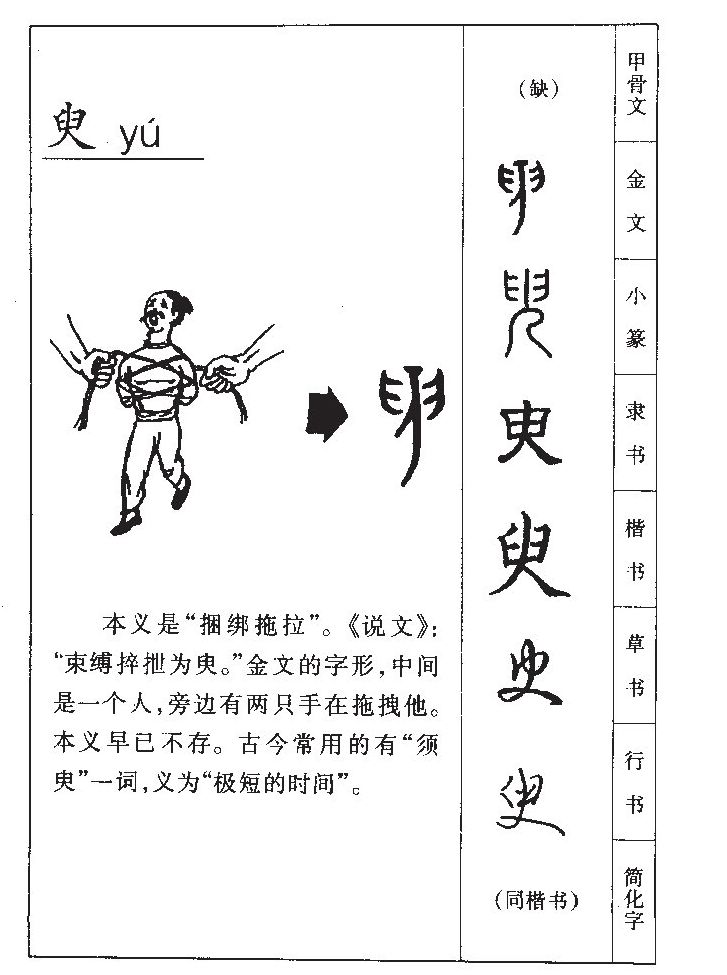 臾 yú
本义是“捆绑拖拉”。《说文》:
“束缚捽抴为臾。”金文的字形,中间
是一个人,旁边有两只手在拖拽他。
本义早已不存。古今常用的有“须
臾”一词,义为“极短的时间”。
甲骨文
(缺)
金文
臾
小篆
臾
隶书
臾
楷书
臾
草书
臾
行书
臾
简化字
(同楷书)